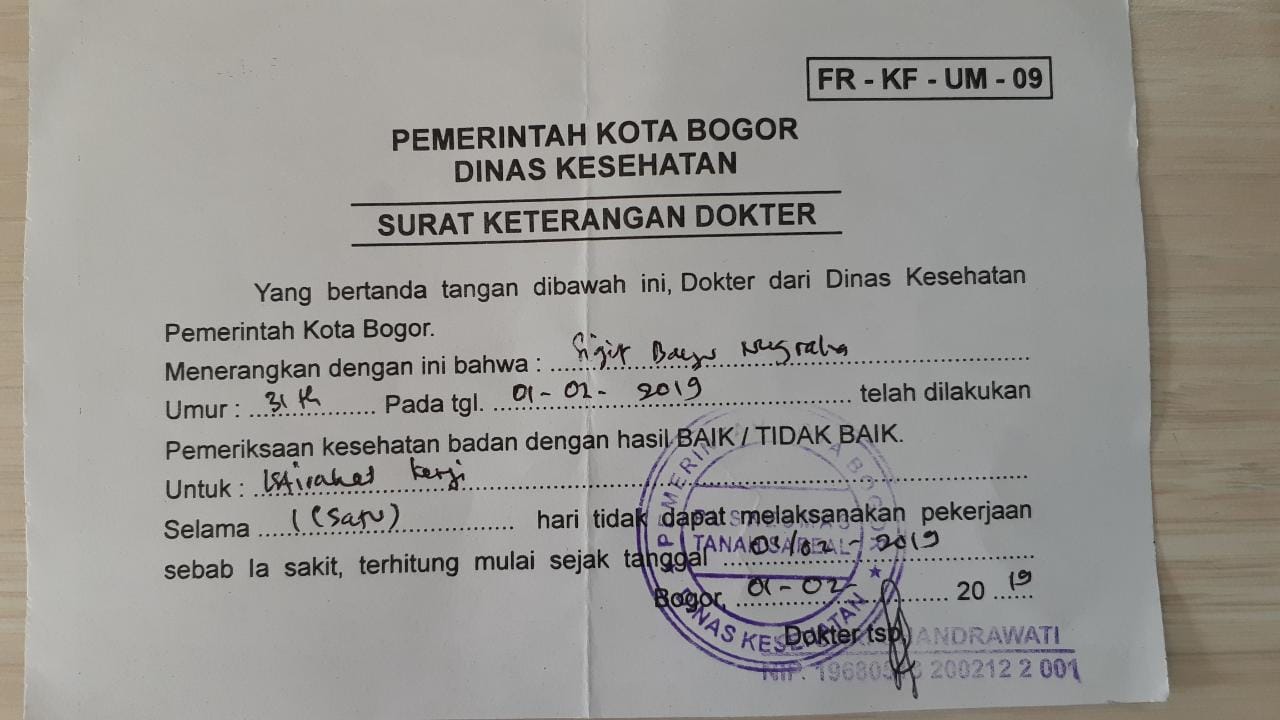 FR - KF - UM - 09
PEMERINTAH KOTA BOGOR
DINAS KESEHATAN
SURAT KETERANGAN DOKTER
Yang bertanda tangan dibawah ini, Dokter dari Dinas Kesehatan
Pemerintah Kota Bogor.
Menerangkan dengan ini bahwa : Sigit Bayu Nugraha
Umur : 31 th Pada tgl. 01-02-2019 telah dilakukan
Pemeriksaan kesehatan badan dengan hasil BAIK / TIDAK BAIK.
Untuk : Istirahat kerja
Selama 1 (satu) hari tidak dapat melaksanakan pekerjaan
sebab Ia sakit, terhitung mulai sejak tanggal 01/02-2019
Bogor, 01-02- 20 19
Dokter tsp,
ANDRAWATI
NIP. 200212 2 001
PEMERINTAH KOTA BOGOR
TANAH SAREAL
DINAS KESEHATAN